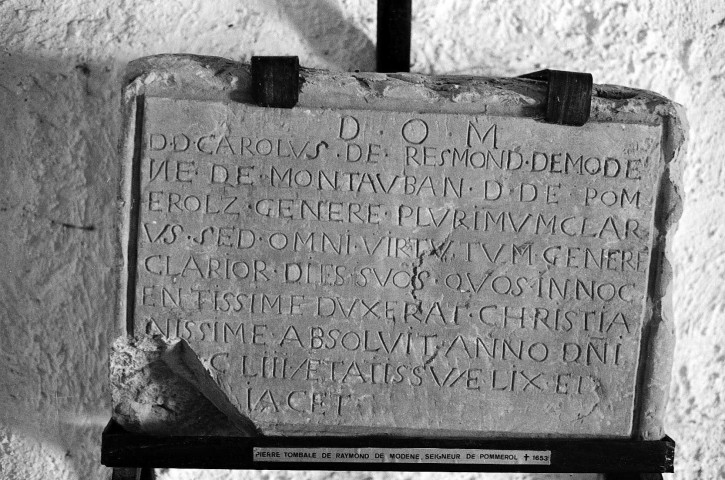 D · O · M
D · D · CAROLVS · DE · RESMOND · DE MODE
NE · DE · MONTAVBAN · D · DE POM
EROLZ · GENERE · PLVRIMVM CLAR
VS · SED · OMNI · VIRTVTVM · GENERE
CLARIOR · DIES · SVOS · QVOS · INNOC
ENTISSIME DVXERAT · CHRISTIA
NISSIME ABSOLVIT · ANNO DNI
C LIII
IACET ·
PIERRE TOMBALE DE RAYMOND DE MODENE, SEIGNEUR DE POMMEROL ✝ 1653